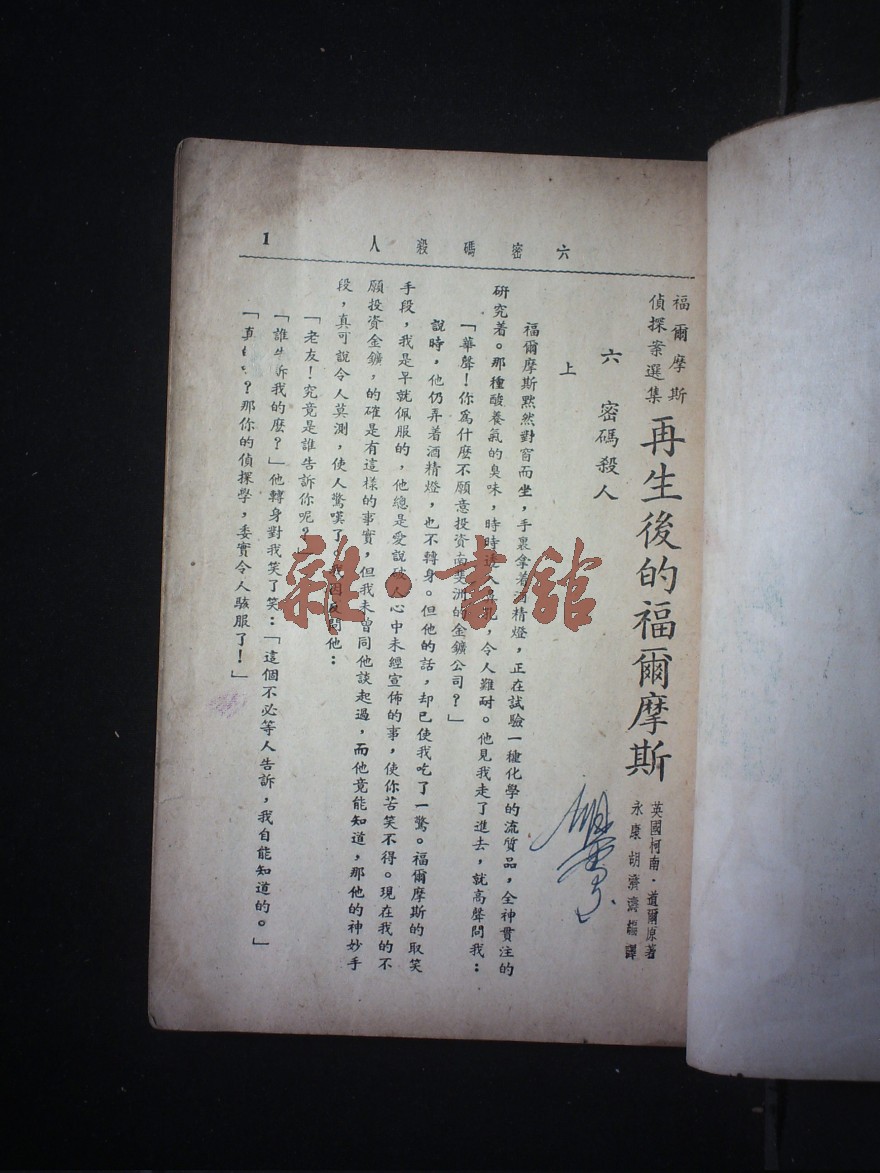 1
六密碼殺人
福爾摩斯
偵探案選集
再生後的福爾摩斯
英國柯南·道爾原著
永康胡濟濤編譯
六 密碼殺人
上
福爾摩斯默然對窗而坐，手裏拿着酒精燈，正在試驗一種化學的流質品，全神貫注的
研究着。那種酸養氣的臭味，時時透入，令人難耐。他見我走了進去，就高聲問我：
「華聲！你爲什麽不願意投資南斐洲的金鑛公司？」
說時，他仍弄着酒精燈，也不轉身。但他的話，却已使我吃了一驚。福爾摩斯的取笑
手段，我是早就佩服的，他總是愛說破人心中未經宣佈的事，使你苦笑不得。現在我的不
願投資金鑛，的確是有這樣的事實，但我未曾同他談起過，而他竟能知道，那他的神妙手
段，真可說令人莫測，使人驚嘆了。我因反問他：
「老友！究竟是誰告訴你呢？」
「誰告訴我的麽？」他轉身對我笑了笑：「這個不必等人告訴，我自能知道的。」
「真？那你的偵探學，委實令人駭服了！」
雜·書館